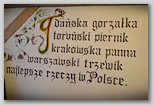 Gdańska gorzałka
toruński piernik
krakowska panna
warszawski trzewik
najlepsze rzeczy w Polsce.